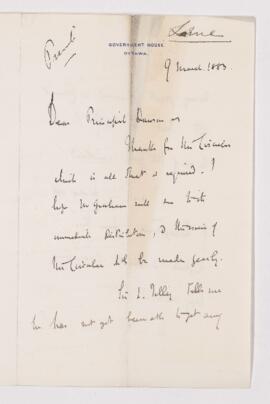 Private
Lorne
GOVERNMENT HOUSE
OTTAWA.
9 March 1883
Dear Principal Dawson
Thanks for the Circular
which is all that is required. I
hope Mr Graham will
immediate distribution, &
the Circular be made yearly.
Sir L. Tilley tells me
he has not yet been able to get any